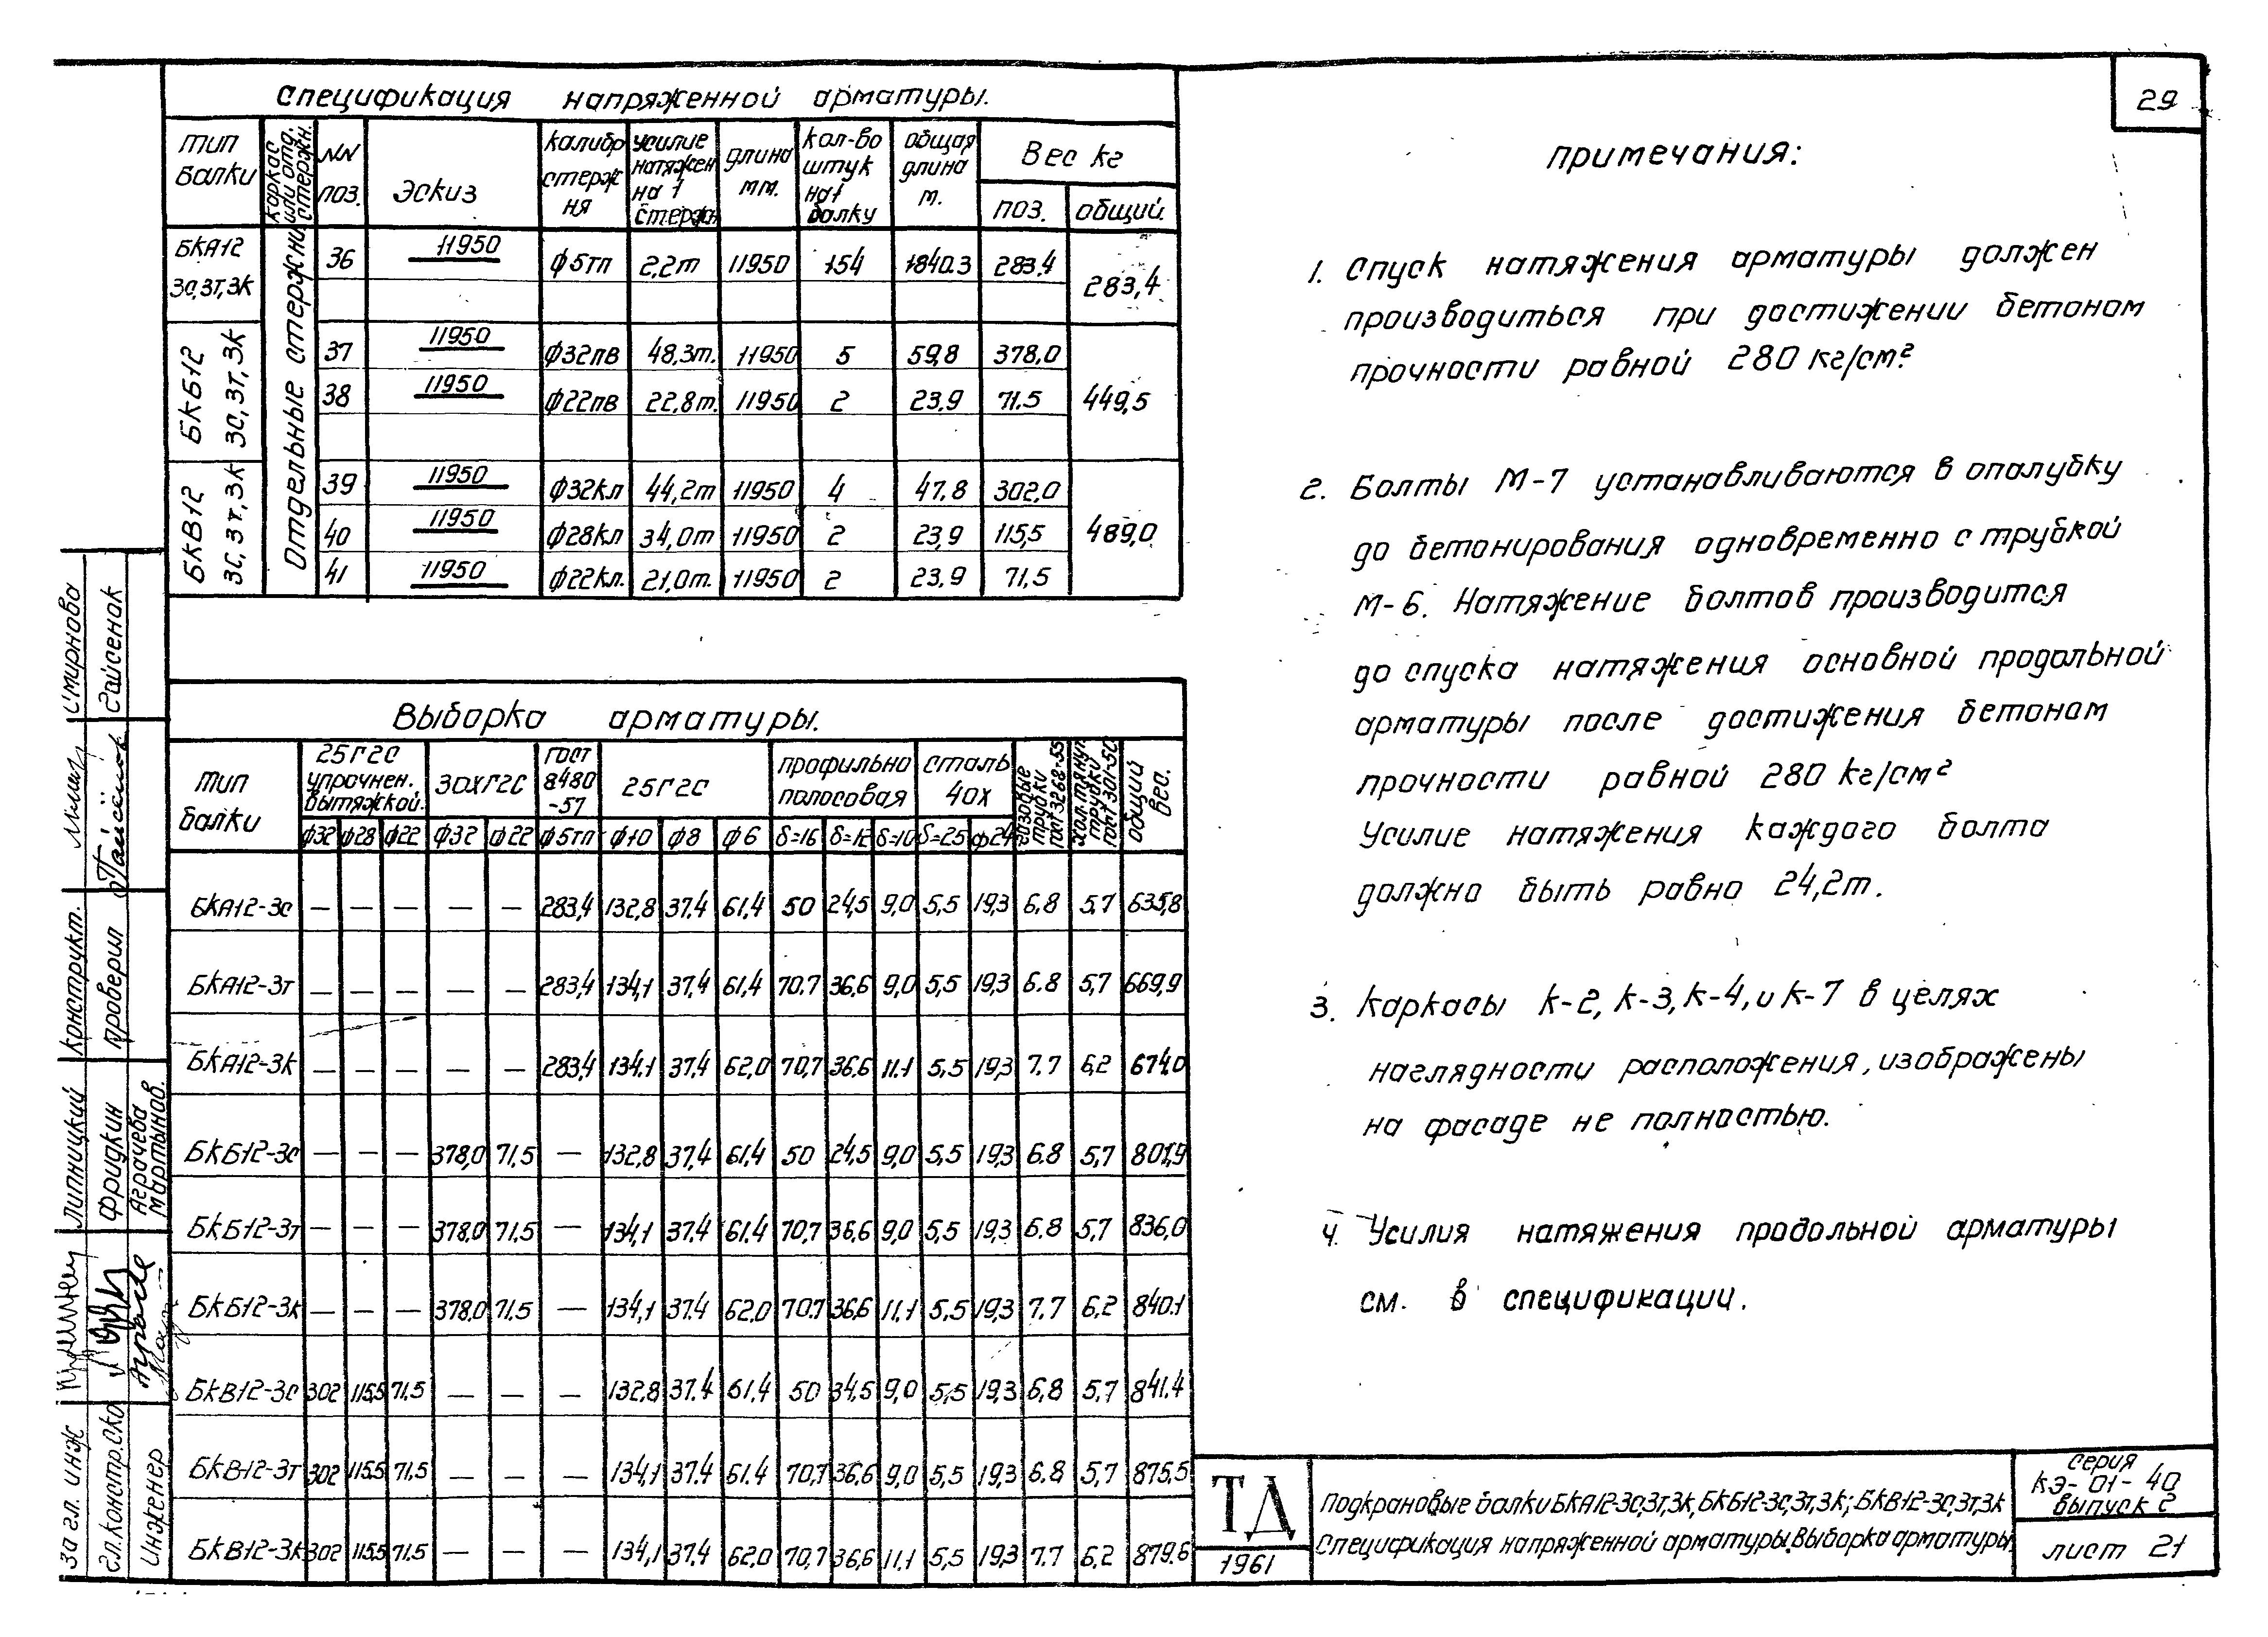 29
Спецификация напряженной арматуры.
Тип балки | каркас или отд. стержн. | NN поз. | Эскиз | калибр стерж ня | усилие натяжен на 1 стержн | длина мм. | кол-во штук на 1 балку | общая длина м. | Вес кг
поз. | общий.
Отдельные стержни
БКА12 3с,3т,3к | 36 | 11950 | ф5тп | 2,2т | 11950 | 154 | 1840.3 | 283.4 | 283,4
БКБ12 3с,3т,3к | 37 | 11950 | ф32пв | 48,3т. | 11950 | 5 | 59,8 | 378,0 | 449,5
38 | 11950 | ф22пв | 22,8т. | 11950 | 2 | 23.9 | 71.5
БКВ12 3с,3т,3к | 39 | 11950 | ф32кл | 44,2т | 11950 | 4 | 47.8 | 302,0 | 489,0
40 | 11950 | ф28кл | 34,0т | 11950 | 2 | 23,9 | 115,5
41 | 11950 | ф22кл. | 21,0т. | 11950 | 2 | 23.9 | 71,5
Выборка арматуры.
Тип балки | 25Г2С упрочнен. вытяжкой. | 30ХГ2С | ГОСТ 8480-57 | 25Г2С | профильно полосовая | сталь 40х | газовые трубки гост 3268-55 | хол.тянут трубки гост 301-50 | общий вес.
ф32 | ф28 | ф22 | ф32 | ф22 | ф5тп | ф10 | ф8 | ф6 | δ=16 | δ=12 | δ=10 | δ=25 | ф24
БКА12-3с | — | — | — | — | — | 283,4 | 132,8 | 37.4 | 61.4 | 50 | 24,5 | 9,0 | 5,5 | 19,3 | 6.8 | 5,7 | 635,8
БКА12-3т | — | — | — | — | — | 283,4 | 134,1 | 37,4 | 61,4 | 70,7 | 36,6 | 9,0 | 5,5 | 19,3 | 6.8 | 5,7 | 669,9
БКА12-3к | — | — | — | — | — | 283,4 | 134.1 | 37.4 | 62,0 | 70,7 | 36,6 | 11.1 | 5,5 | 19,3 | 7.7 | 6,2 | 674,0
БКБ12-3с | — | — | — | 378,0 | 71,5 | — | 132,8 | 37,4 | 61.4 | 50 | 24,5 | 9,0 | 5,5 | 19,3 | 6.8 | 5,7 | 801,9
БКБ12-3т | — | — | — | 378,0 | 71,5 | — | 134,1 | 37.4 | 61.4 | 70,7 | 36,6 | 9,0 | 5,5 | 19,3 | 6.8 | 5,7 | 836,0
БКБ12-3к | — | — | — | 378,0 | 71,5 | — | 134,1 | 37.4 | 62,0 | 70.7 | 36,6 | 11,1 | 5,5 | 19,3 | 7.7 | 6,2 | 840.1
БКВ12-3с | 302 | 115,5 | 71,5 | — | — | — | 132,8 | 37.4 | 61.4 | 50 | 34,5 | 9,0 | 5,5 | 19,3 | 6,8 | 5,7 | 841.4
БКВ12-3т | 302 | 115,5 | 71,5 | — | — | — | 134,1 | 37.4 | 61.4 | 70,7 | 36,6 | 9,0 | 5,5 | 19,3 | 6.8 | 5,7 | 875,5
БКВ12-3к | 302 | 115,5 | 71,5 | — | — | — | 134,1 | 37.4 | 62,0 | 70,7 | 36,6 | 11,1 | 5,5 | 19,3 | 7.7 | 6,2 | 879.6
Примечания:
1. Спуск натяжения арматуры должен
производиться при достижении бетоном
прочности равной 280 кг/см²
2. Болты М-7 устанавливаются в опалубку
до бетонирования одновременно с трубкой
М-6. Натяжение болтов производится
до спуска натяжения основной продольной
арматуры после достижения бетоном
прочности равной 280 кг/см²
Усилие натяжения каждого болта
должно быть равно 24,2т.
3. Каркасы К-2, К-3, К-4, и К-7 в целях
наглядности расположения, изображены
на фасаде не полностью.
4. Усилия натяжения продольной арматуры
см. в спецификации.
Смирнова
Гайсенак
конструкт.
проверил
Липницкий
Фридкин
Аграчева
Мартынов.
За гл. инж
Гл.констр.СКО
Инженер
ТД
1961
Подкрановые балки БКА12-3с,3т,3к, БКБ12-3с,3т,3к; БКВ12-3с,3т,3к
Спецификация напряженной арматуры. Выборка арматуры.
серия
КЭ-01-40
выпуск 2
лист 21